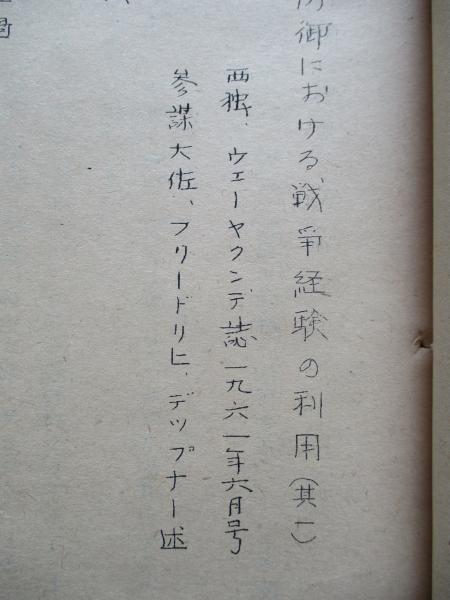 防御における戦争経験の利用(其一)
西独、ウェーヤクンデ誌一九六一年六月号
参謀大佐、フリードリヒ、デップナー述